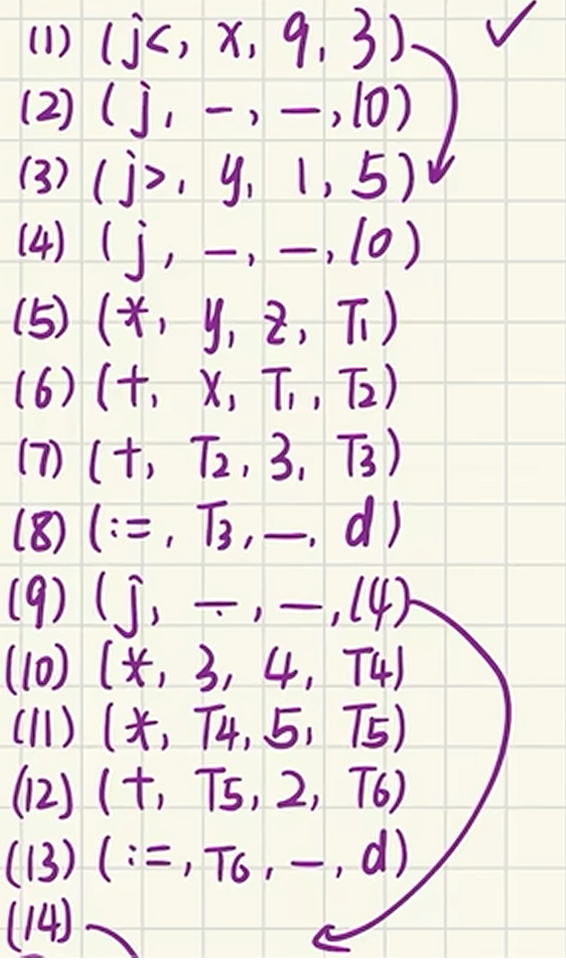 (1) (j<, x, 9, 3)
(2) (j, -, -, 10)
(3) (j>, y, 1, 5)
(4) (j, -, -, 10)
(5) (*, y, z, T1)
(6) (+, x, T1, T2)
(7) (+, T2, 3, T3)
(8) (:=, T3, -, d)
(9) (j, -, -, 14)
(10) (*, 3, 4, T4)
(11) (*, T4, 5, T5)
(12) (+, T5, 2, T6)
(13) (:=, T6, -, d)
(14)